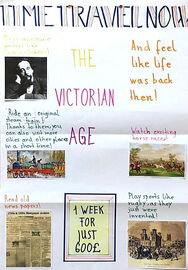 TIME TRAVEL NOW
THE
VICTORIAN
AGE
And feel
like life
was back
then!
Ride an original
steam train!
Thanks to them, you
can also visit more
cities and other places
in a short time!
Watch exciting
horse races!
Read old
news papers!
1 WEEK
FOR
JUST
600£
Play sports like
rugby, as they
just were
invented!